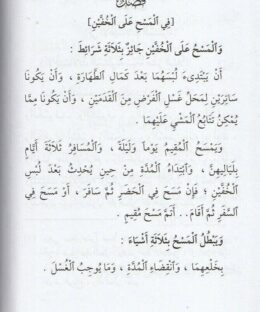 فَصْلٌ
[فِي ٱلْمَسْحِ عَلَى ٱلْخُفَّيْنِ]
وَٱلْمَسْحُ عَلَى ٱلْخُفَّيْنِ جَائِزٌ بِثَلَاثَةِ شَرَائِطَ :
أَنْ يَبْتَدِىءَ لُبْسَهُمَا بَعْدَ كَمَالِ ٱلطَّهَارَةِ ، وَأَنْ يَكُونَا
سَاتِرَيْنِ لِمَحَلِّ غَسْلِ ٱلْفَرْضِ مِنَ ٱلْقَدَمَيْنِ ، وَأَنْ يَكُونَا مِمَّا
يُمْكِنُ تَتَابُعُ ٱلْمَشْيِ عَلَيْهِمَا .
وَيَمْسَحُ ٱلْمُقِيمُ يَوْماً وَلَيْلَةً ، وَٱلْمُسَافِرُ ثَلَاثَةَ أَيَّامٍ
بِلَيَالِيهِنَّ ، وَٱبْتِدَاءُ ٱلْمُدَّةِ مِنْ حِينِ يُحْدِثُ بَعْدَ لُبْسِ
ٱلْخُفَّيْنِ ؛ فَإِنْ مَسَحَ فِي ٱلْحَضَرِ ثُمَّ سَافَرَ ، أَوْ مَسَحَ فِي
ٱلسَّفَرِ ثُمَّ أَقَامَ . . أَتَمَّ مَسْحَ مُقِيمٍ .
وَيَبْطُلُ ٱلْمَسْحُ بِثَلَاثَةِ أَشْيَاءَ :
بِخَلْعِهِمَا ، وَٱنْقِضَاءِ ٱلْمُدَّةِ ، وَمَا يُوجِبُ ٱلْغُسْلَ .